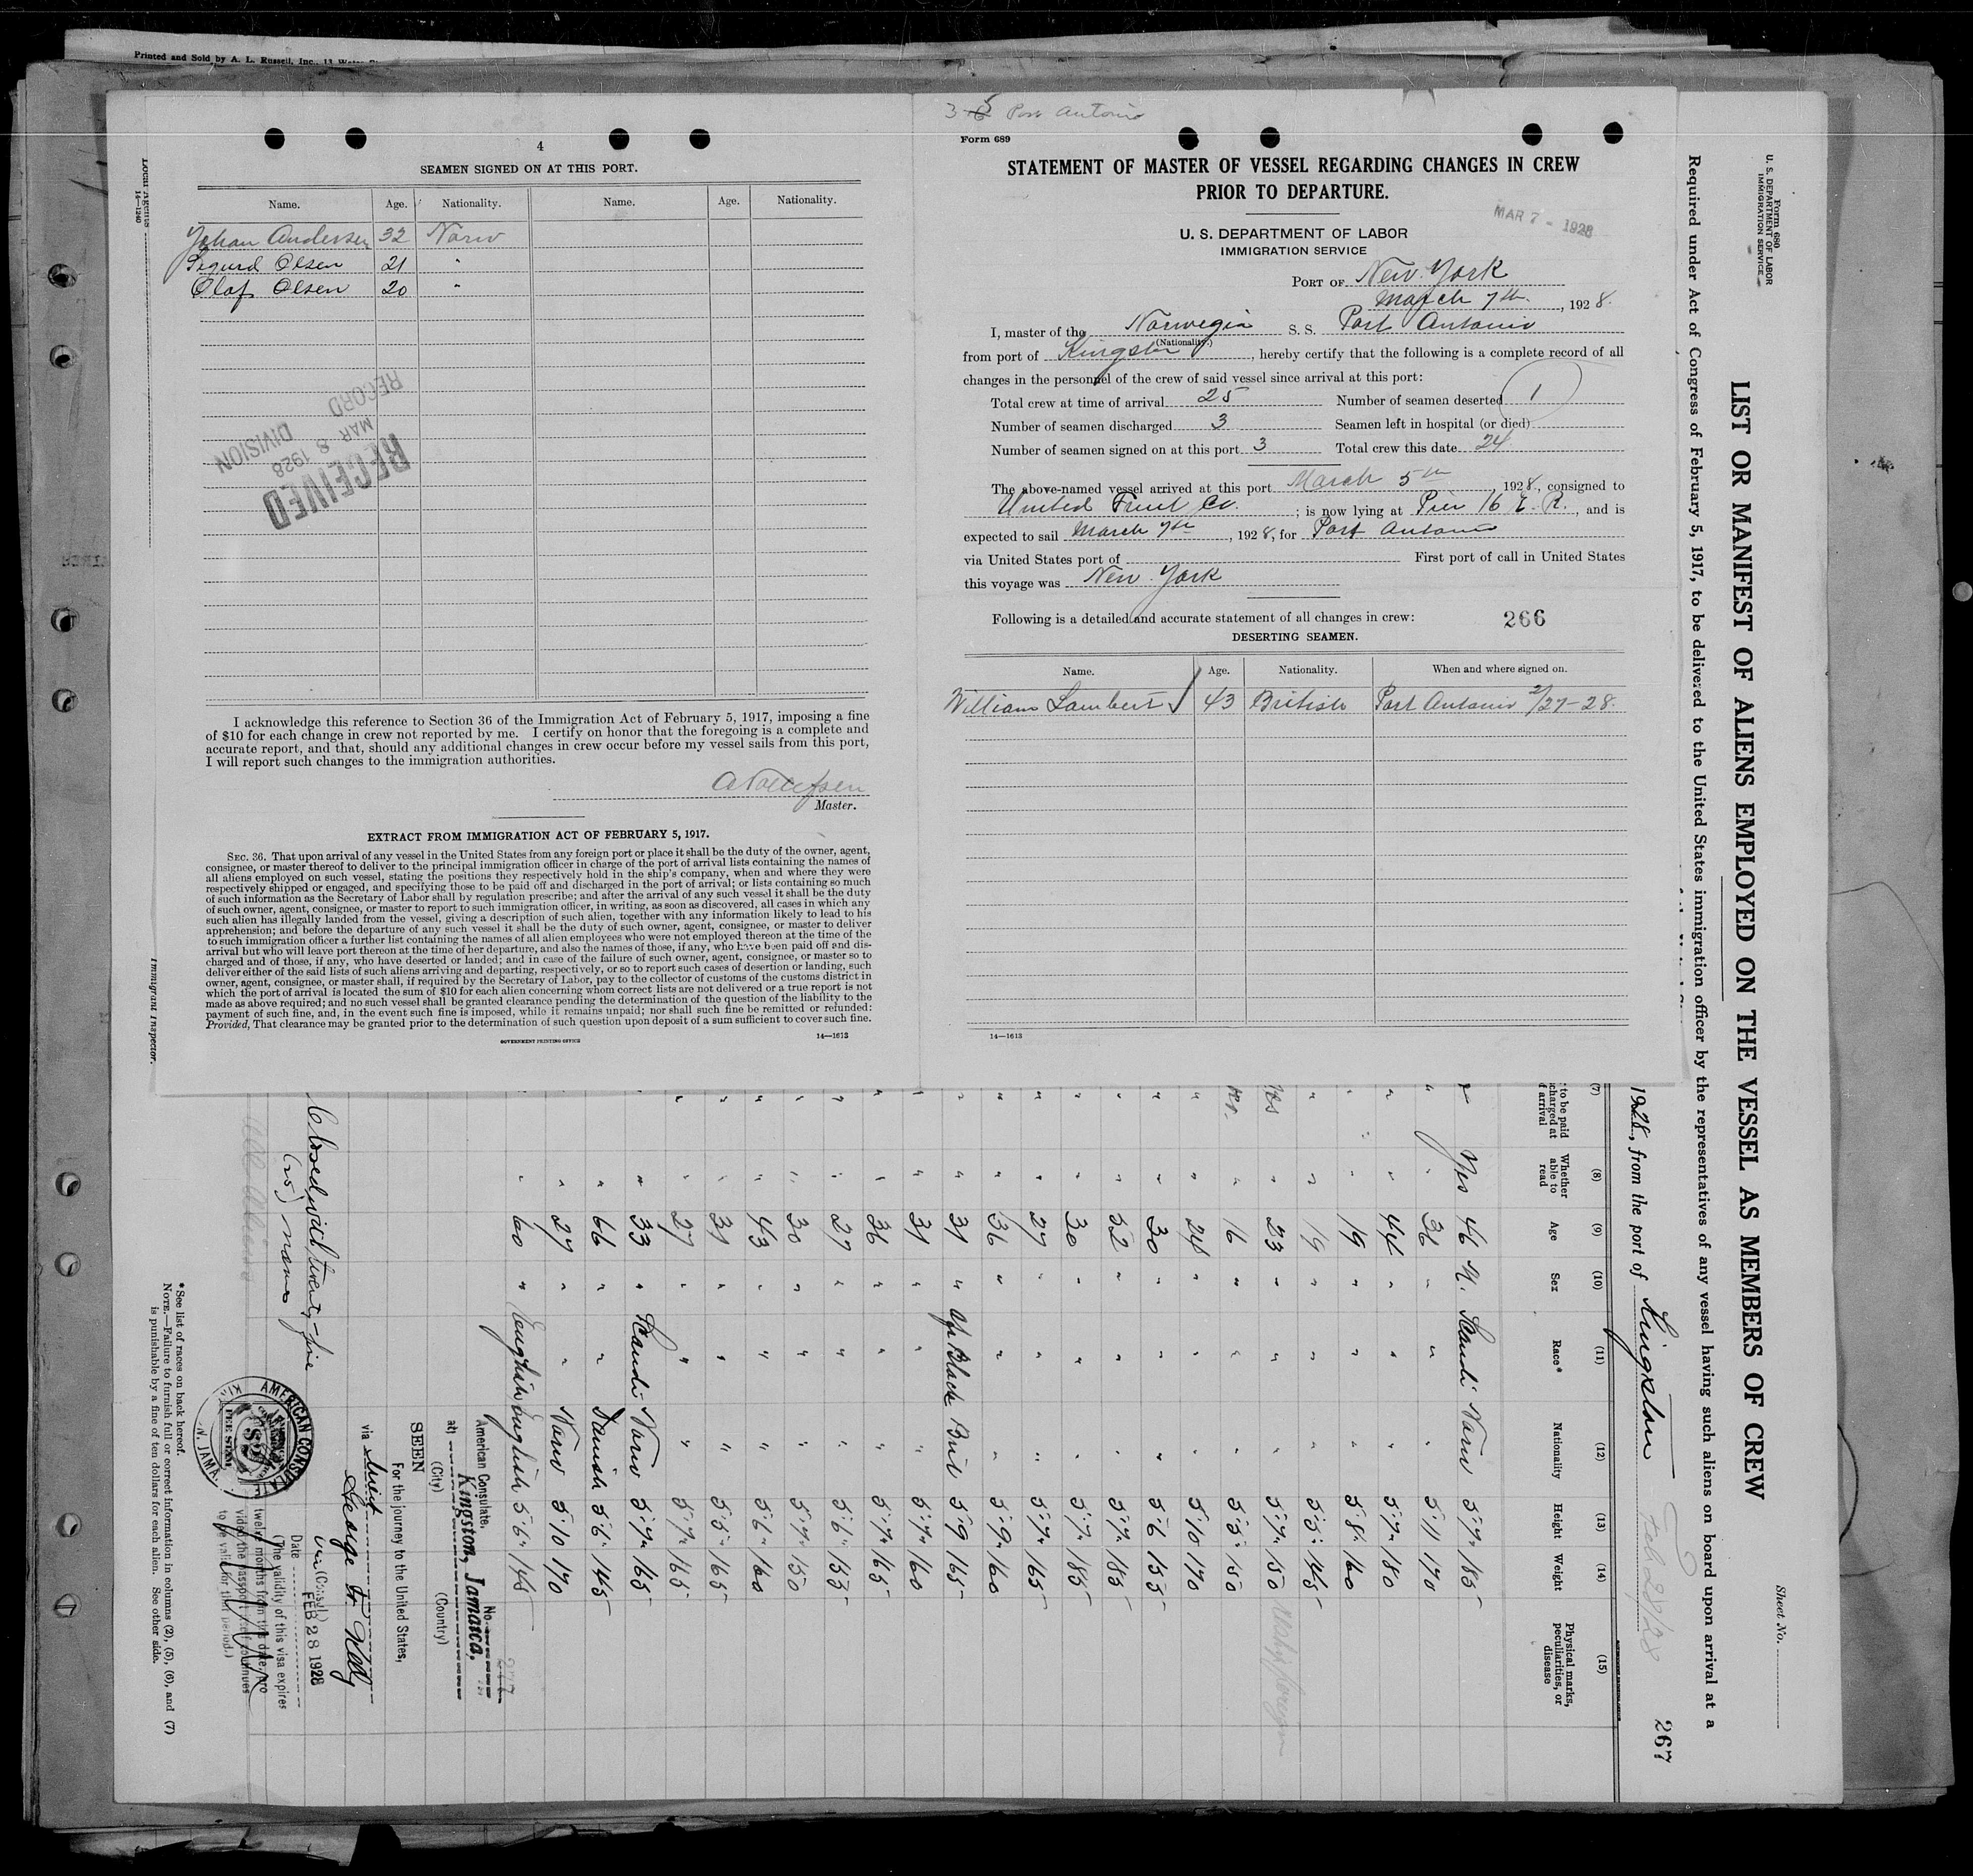 Printed and Sold by A. L. Russell, Inc., 13
4
SEAMEN SIGNED ON AT THIS PORT.
Name. Age. Nationality. Name. Age. Nationality.
Johan Andersen 32 Norw
Sigurd Olsen 21 "
Olaf Olsen 20 "
RECEIVED
MAR 8 1928
RECORD DIVISION
I acknowledge this reference to Section 36 of the Immigration Act of February 5, 1917, imposing a fine
of $10 for each change in crew not reported by me. I certify on honor that the foregoing is a complete and
accurate report, and that, should any additional changes in crew occur before my vessel sails from this port,
I will report such changes to the immigration authorities.
Master.
EXTRACT FROM IMMIGRATION ACT OF FEBRUARY 5, 1917.
SEC. 36. That upon arrival of any vessel in the United States from any foreign port or place it shall be the duty of the owner, agent,
consignee, or master thereof to deliver to the principal immigration officer in charge of the port of arrival lists containing the names of
all aliens employed on such vessel, stating the positions they respectively hold in the ship's company, when and where they were
respectively shipped or engaged, and specifying those to be paid off and discharged in the port of arrival; or lists containing so much
of such information as the Secretary of Labor shall by regulation prescribe; and after the arrival of any such vessel it shall be the duty
of such owner, agent, consignee, or master to report to such immigration officer, in writing, as soon as discovered, all cases in which any
such alien has illegally landed from the vessel, giving a description of such alien, together with any information likely to lead to his
apprehension; and before the departure of any such vessel it shall be the duty of such owner, agent, consignee, or master to deliver
to such immigration officer a further list containing the names of all alien employees who were not employed thereon at the time of the
arrival but who will leave port thereon at the time of her departure, and also the names of those, if any, who have been paid off and dis-
charged and of those, if any, who have deserted or landed; and in case of the failure of such owner, agent, consignee, or master so to
deliver either of the said lists of such aliens arriving and departing, respectively, or so to report such cases of desertion or landing, such
owner, agent, consignee, or master shall, if required by the Secretary of Labor, pay to the collector of customs of the customs district in
which the port of arrival is located the sum of $10 for each alien concerning whom correct lists are not delivered or a true report is not
made as above required; and no such vessel shall be granted clearance pending the determination of the question of the liability to the
payment of such fine, and, in the event such fine is imposed, while it remains unpaid; nor shall such fine be remitted or refunded:
Provided, That clearance may be granted prior to the determination of such question upon deposit of a sum sufficient to cover such fine.
GOVERNMENT PRINTING OFFICE 14—1613
Local Agents
14—1240
Immigrant Inspector.
3-5 Port Antonio
Form 689
STATEMENT OF MASTER OF VESSEL REGARDING CHANGES IN CREW
PRIOR TO DEPARTURE.
MAR 7 - 1928
U. S. DEPARTMENT OF LABOR
IMMIGRATION SERVICE
PORT OF New York
March 7th, 1928.
I, master of the Norwegia S. S. Port Antonio
(Nationality.)
from port of Kingston, hereby certify that the following is a complete record of all
changes in the personnel of the crew of said vessel since arrival at this port:
Total crew at time of arrival 25 Number of seamen deserted 1
Number of seamen discharged 3 Seamen left in hospital (or died)
Number of seamen signed on at this port 3 Total crew this date 24
The above-named vessel arrived at this port March 5th, 1928, consigned to
United Fruit Co. ; is now lying at Pier 16 E. R., and is
expected to sail March 7th, 1928, for Port Antonio
via United States port of First port of call in United States
this voyage was New York
Following is a detailed and accurate statement of all changes in crew: 266
DESERTING SEAMEN.
Name. Age. Nationality. When and where signed on.
William Lambert 43 British Port Antonio 2/27-28.
14—1613
Form 680
U. S. DEPARTMENT OF LABOR
IMMIGRATION SERVICE
Sheet No.
LIST OR MANIFEST OF ALIENS EMPLOYED ON THE VESSEL AS MEMBERS OF CREW
Required under Act of Congress of February 5, 1917, to be delivered to the United States immigration officer by the representatives of any vessel having such aliens on board upon arrival at a
1928, from the port of Kingston Feb 28/28
267
(7) (8) (9) (10) (11) (12) (13) (14) (15)
to be paid
charged at
arrival
Whether able to read
Age
Sex
Race*
Nationality
Height
Weight
Physical marks, peculiarities, or disease
" Yes 46 M. Scandi Norw 5.7" 185
" " 36 " " " 5.11 170
" " 44 " " " 5.7" 180
" " 19 " " " 5.8" 160
" " 19 " " " 5.5" 145
Yes " 23 " " " 5.7" 150
" 16 " " " 5.5" 150
" " 24 " " " 5.10 170
" " 30 " " " 5.6 155
" " 32 " " " 5.7" 185
" " 30 " " " 5.7" 185
" " 27 " " " 5.7" 165
" " 36 " " " 5.9" 160
" " 31 " Af. Black Brit 5.9 165
" " 31 " " " 5.7" 160
" " 36 " " " 5.7" 165
" " 27 " " " 5.6" 155
" " 30 " " " 5.7" 150
" " 43 " " " 5.6" 160
" " 31 " " " 5.5" 165
" " 27 " " " 5.7" 165
" 33 " Scandi Norw 5.7" 165
" 66 " " Danish 5.6" 145
" 27 " " Norw 5.10 170
" 60 " English English 5.6" 145
American Consulate, No.
at Kingston, Jamaica,
(City) (Country)
SEEN
For the journey to the United States,
via direct
(Consul.)
Date FEB 28 1928
(The validity of this visa expires
twelve months from this date, pro
vided the passport continues
to be valid for that period.)
Closed with twenty-five
(25) names
All Aliens
AMERICAN CONSULATE
KIN N, JAMA.
$2
FEE STAMP
*See list of races on back hereof.
NOTE.—Failure to furnish full or correct information in columns (2), (5), (6), and (7)
is punishable by a fine of ten dollars for each alien. See other side.